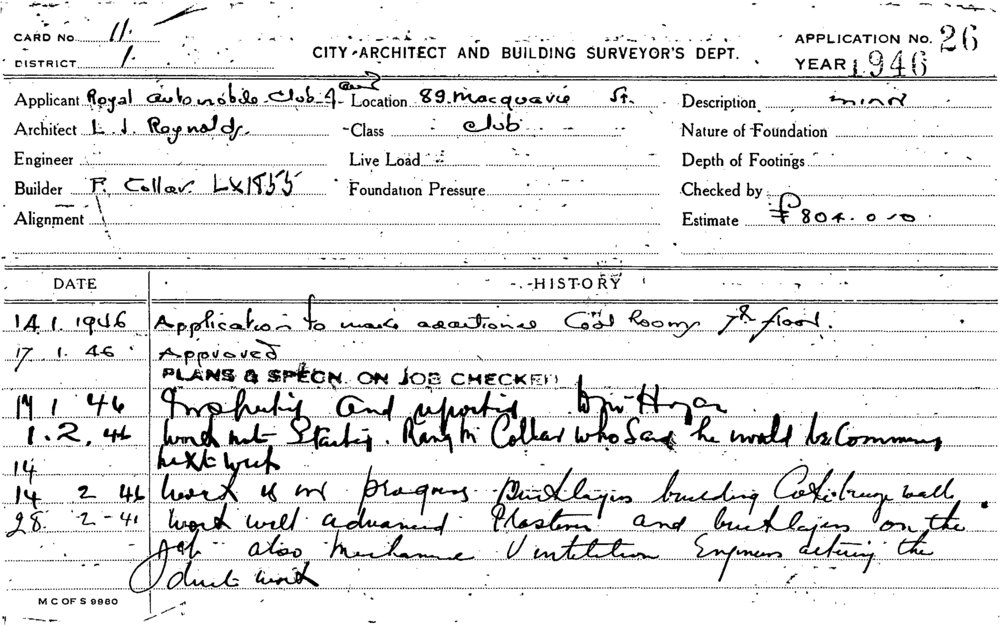 CARD No. 11.
DISTRICT 1.
CITY ARCHITECT AND BUILDING SURVEYOR'S DEPT.
APPLICATION No. 26
YEAR 1946
Applicant Royal automobile Club Location 89 Macquarie St. Description minor
Architect L. J. Reynolds. Class club Nature of Foundation
Engineer Live Load Depth of Footings
Builder P. Collar LX1855 Foundation Pressure Checked by
Alignment Estimate £804.0.0.
DATE HISTORY
14.1.1946 Application to make additional Cool Rooms 7th floor.
17.1.46 Approved
PLANS & SPECN. ON JOB CHECKED
17 1 46 Inspected and reported
1.2.46 Work not Started. Rang Mr Collar who Said he would be Comming
14 next week
14 2 46 Work is in progress Bricklayers building walls.
28. 2-41 Work well advanced Plasterers and bricklayers on the
Job also Mechanical Ventilation Engineers the
duct work
M C OF S 9980